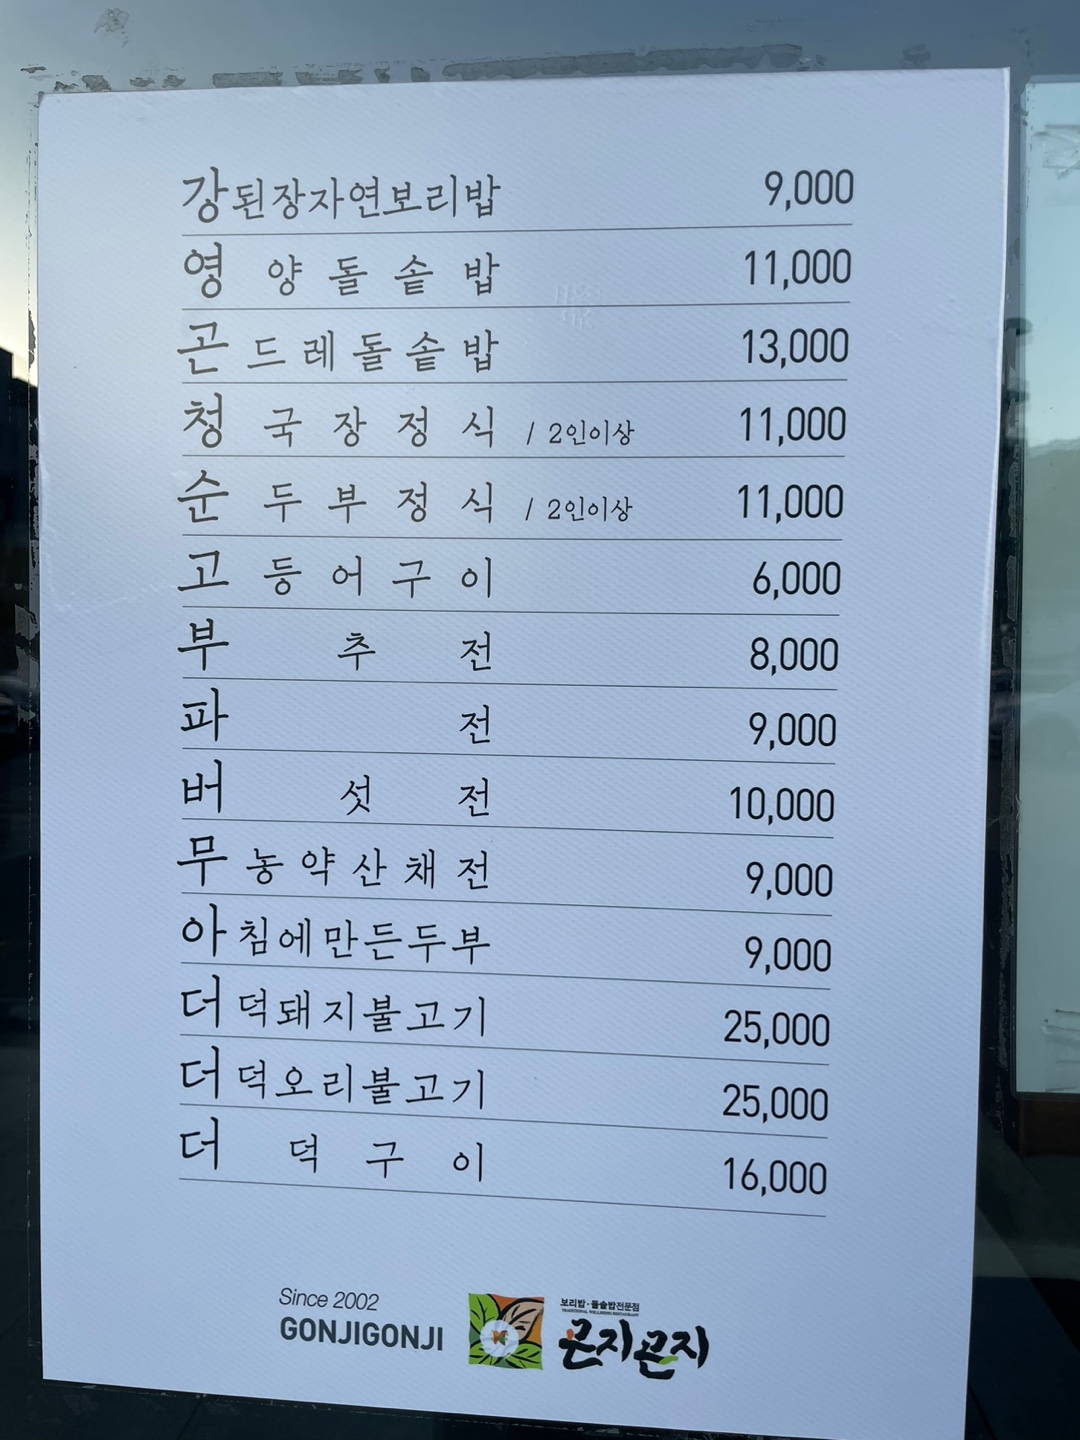 강된장자연보리밥 9,000
영양돌솥밥 11,000
곤드레돌솥밥 13,000
청국장정식 / 2인이상 11,000
순두부정식 / 2인이상 11,000
고등어구이 6,000
부추전 8,000
파전 9,000
버섯전 10,000
무농약산채전 9,000
아침에만든두부 9,000
더덕돼지불고기 25,000
더덕오리불고기 25,000
더덕구이 16,000
Since 2002
GONJIGONJI
보리밥·돌솥밥전문점
TRADITIONAL WELLBEING RESTAURANT
곤지곤지